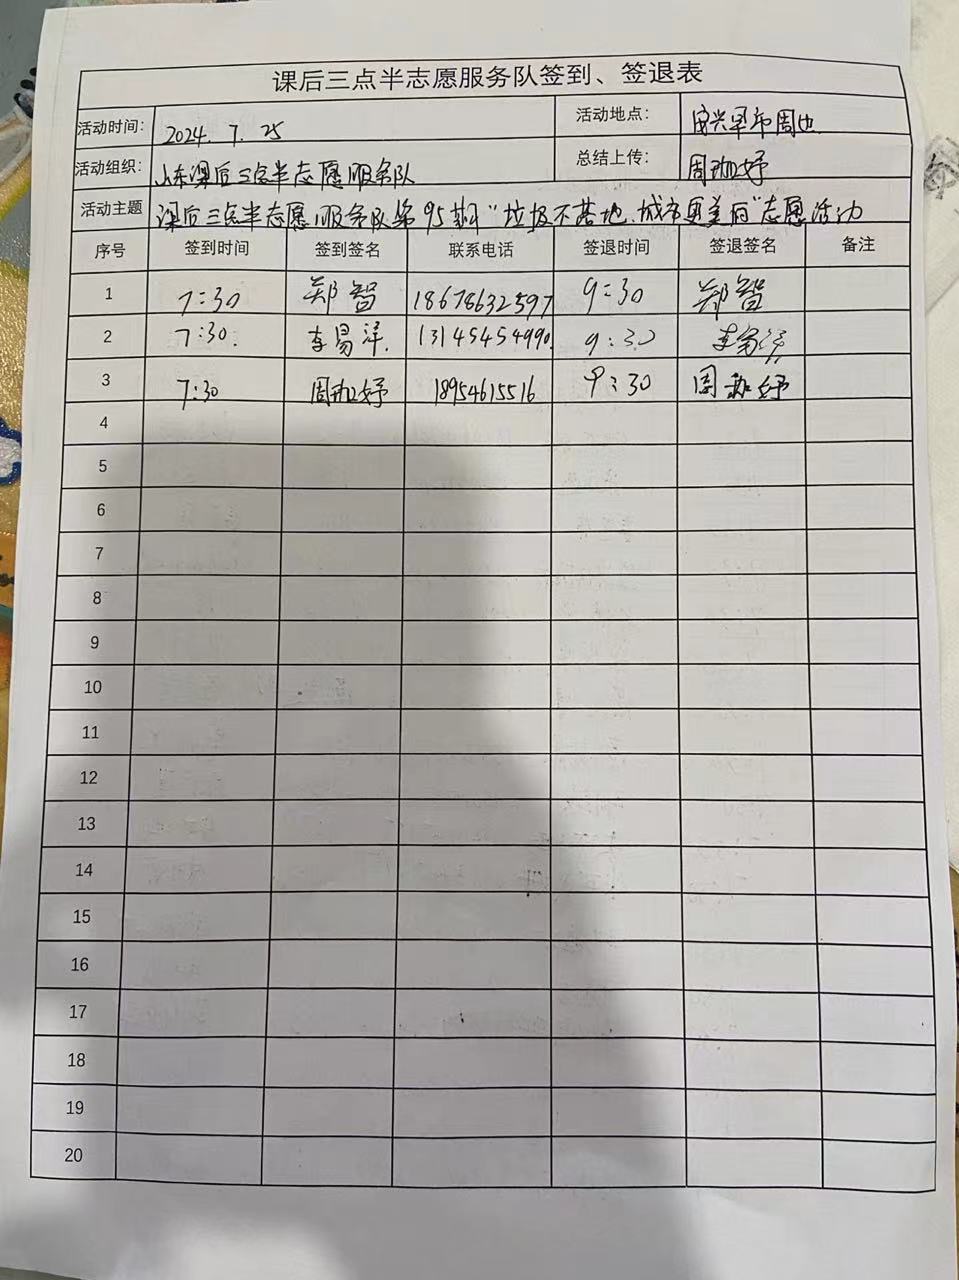 课后三点半志愿服务队签到、签退表
活动时间: 2024.7.25 活动地点: 成兴早市周边
活动组织: 山东课后三点半志愿服务队 总结上传: 周珈妤
活动主题 课后三点半志愿服务队第95期“垃圾不落地,城市更美丽”志愿活动
序号 签到时间 签到签名 联系电话 签退时间 签退签名 备注
1 7:30 郑智 18678632597 9:30 郑智
2 7:30. 李易洋. 13145454990. 9:30
3 7:30 周珈妤 18954615516 9:30 周珈妤
4
5
6
7
8
9
10
11
12
13
14
15
16
17
18
19
20